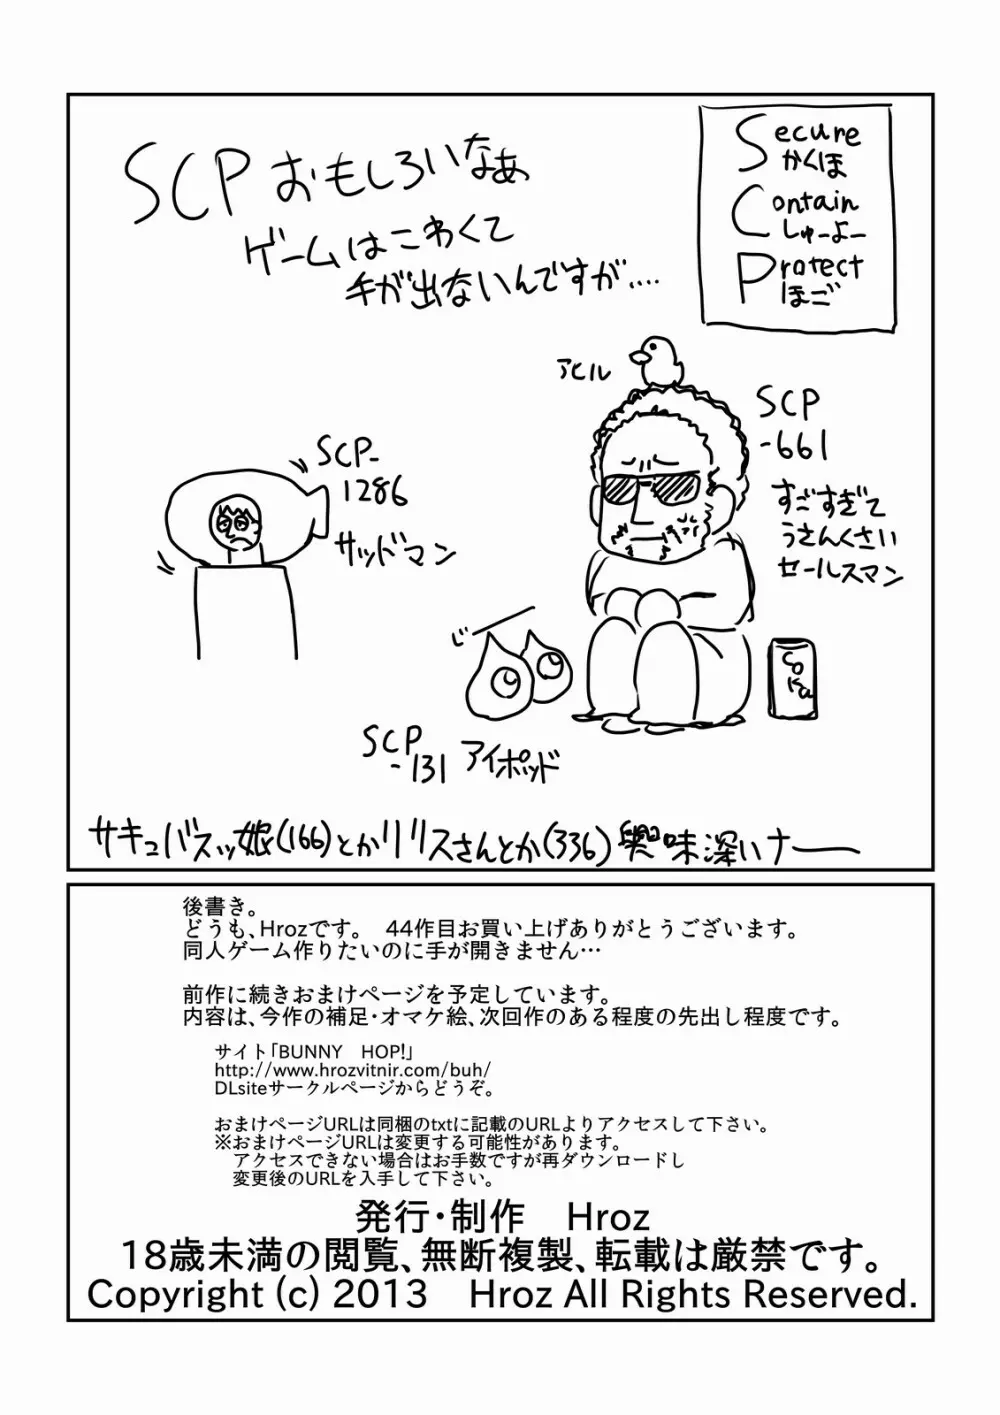 SCP おもしろいなあ
ゲームはこわくて
手が出ないんですが....
Secure
かくほ
Contain
しゅーよー
Protect
ほご
アヒル
SCP
-661
すごすぎて
うさんくさい
セールスマン
SCP-
1286
サッドマン
Coka
SCP
-131 アイポッド
サキュバスッ娘(166)とかリリスさんとか(336)興味深いナー
後書き。
どうも、Hrozです。　44作目お買い上げありがとうございます。
同人ゲーム作りたいのに手が開きません…
前作に続きおまけページを予定しています。
内容は、今作の補足・オマケ絵、次回作のある程度の先出し程度です。
サイト「BUNNY　HOP!」
http://www.hrozvitnir.com/buh/
DLsiteサークルページからどうぞ。
おまけページURLは同梱のtxtに記載のURLよりアクセスして下さい。
※おまけページURLは変更する可能性があります。
アクセスできない場合はお手数ですが再ダウンロードし
変更後のURLを入手して下さい。
発行・制作　Hroz
18歳未満の閲覧、無断複製、転載は厳禁です。
Copyright (c) 2013　Hroz All Rights Reserved.